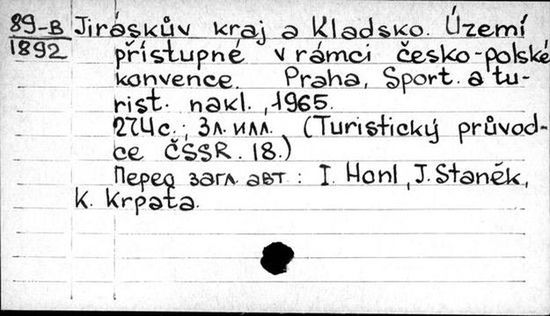 89-В Jiráskův kraj a Kladsko. Území
1892 přístupné v rámci česko-polské
konvence. Praha, Sport. a tu-
rist. nakl., 1965.
274с.; 3л. илл. (Turistický průvod-
ce ČSSR. 18.)
Перед загл. авт.: I. Honl, J. Staněk,
K. Krpata.